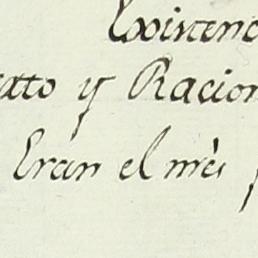 Existenc
atto y Racion
Eran el mès